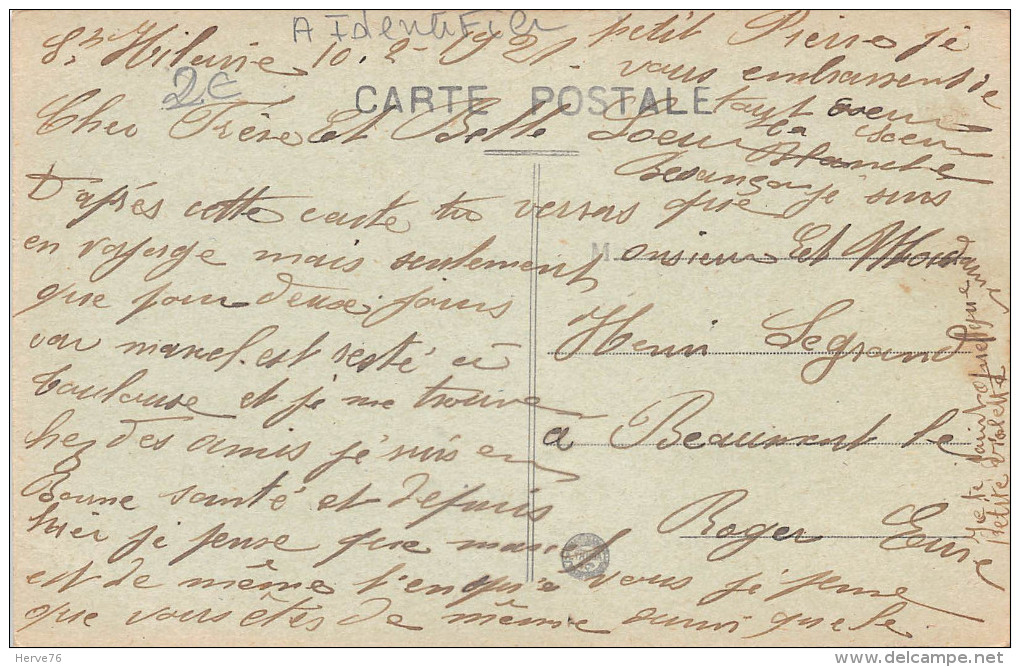 A Identifier
2€
St Hilaire 10.2-1921.
CARTE POSTALE
Cher Frère Et Belle Soeur
D'après cette carte tu verras que je suis
en voyage mais seulement
que pour deux jours
car marcel est resté à
toulouse et je me trouve
chez des amis je suis en
Bonne santé et depuis
hier je pense que marcel
est de même l'en qu'a vous je pense
que vous êtes de même ainsi que le
petit Pierre je
vous embrassent de
tout coeur
ta soeur
Blanche
Besançon
Monsieur Et Madame
Henri Legrand
à Beaumont le
Roger Eure
Je te joint quelque
Petite violette
Herve76
www.delcampe.net